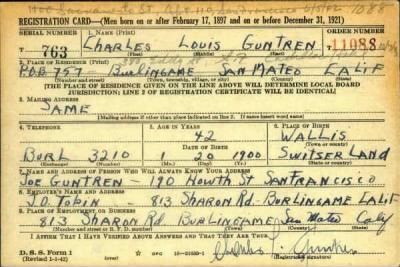 REGISTRATION CARD—(Men born on or after February 17, 1897 and on or before December 31, 1921)
SERIAL NUMBER 1. NAME (Print) ORDER NUMBER
763 CHARLES LOUIS GUNTREN 11088
(First) (Middle) (Last)
2. PLACE OF RESIDENCE (Print)
P.O.B 757 BURLINGAME SAN MATEO CALIF
(Number and street) (Town, township, village, or city) (County) (State)
[THE PLACE OF RESIDENCE GIVEN ON THE LINE ABOVE WILL DETERMINE LOCAL BOARD
JURISDICTION; LINE 2 OF REGISTRATION CERTIFICATE WILL BE IDENTICAL]
3. MAILING ADDRESS
SAME
(Mailing address if other than place indicated on line 2. If same insert word same)
4. TELEPHONE 5. AGE IN YEARS 6. PLACE OF BIRTH
42 WALLIS
DATE OF BIRTH (Town or county)
BURL 3210 20 1900 SWITSERLAND
(Exchange) (Number) (Mo.) (Day) (Yr.) (State or country)
7. NAME AND ADDRESS OF PERSON WHO WILL ALWAYS KNOW YOUR ADDRESS
JOE GUNTREN — 190 HOWTH ST SAN FRANCISCO
8. EMPLOYER'S NAME AND ADDRESS
J.O. TOBIN — 813 SHARON RD. BURLINGAME CALIF
9. PLACE OF EMPLOYMENT OR BUSINESS
813 SHARON RD. BURLINGAME San Mateo Calif
(Number and street or R. F. D. number) (Town) (County) (State)
I AFFIRM THAT I HAVE VERIFIED ABOVE ANSWERS AND THAT THEY ARE TRUE.
D. S. S. Form 1
(Revised 1-1-42)